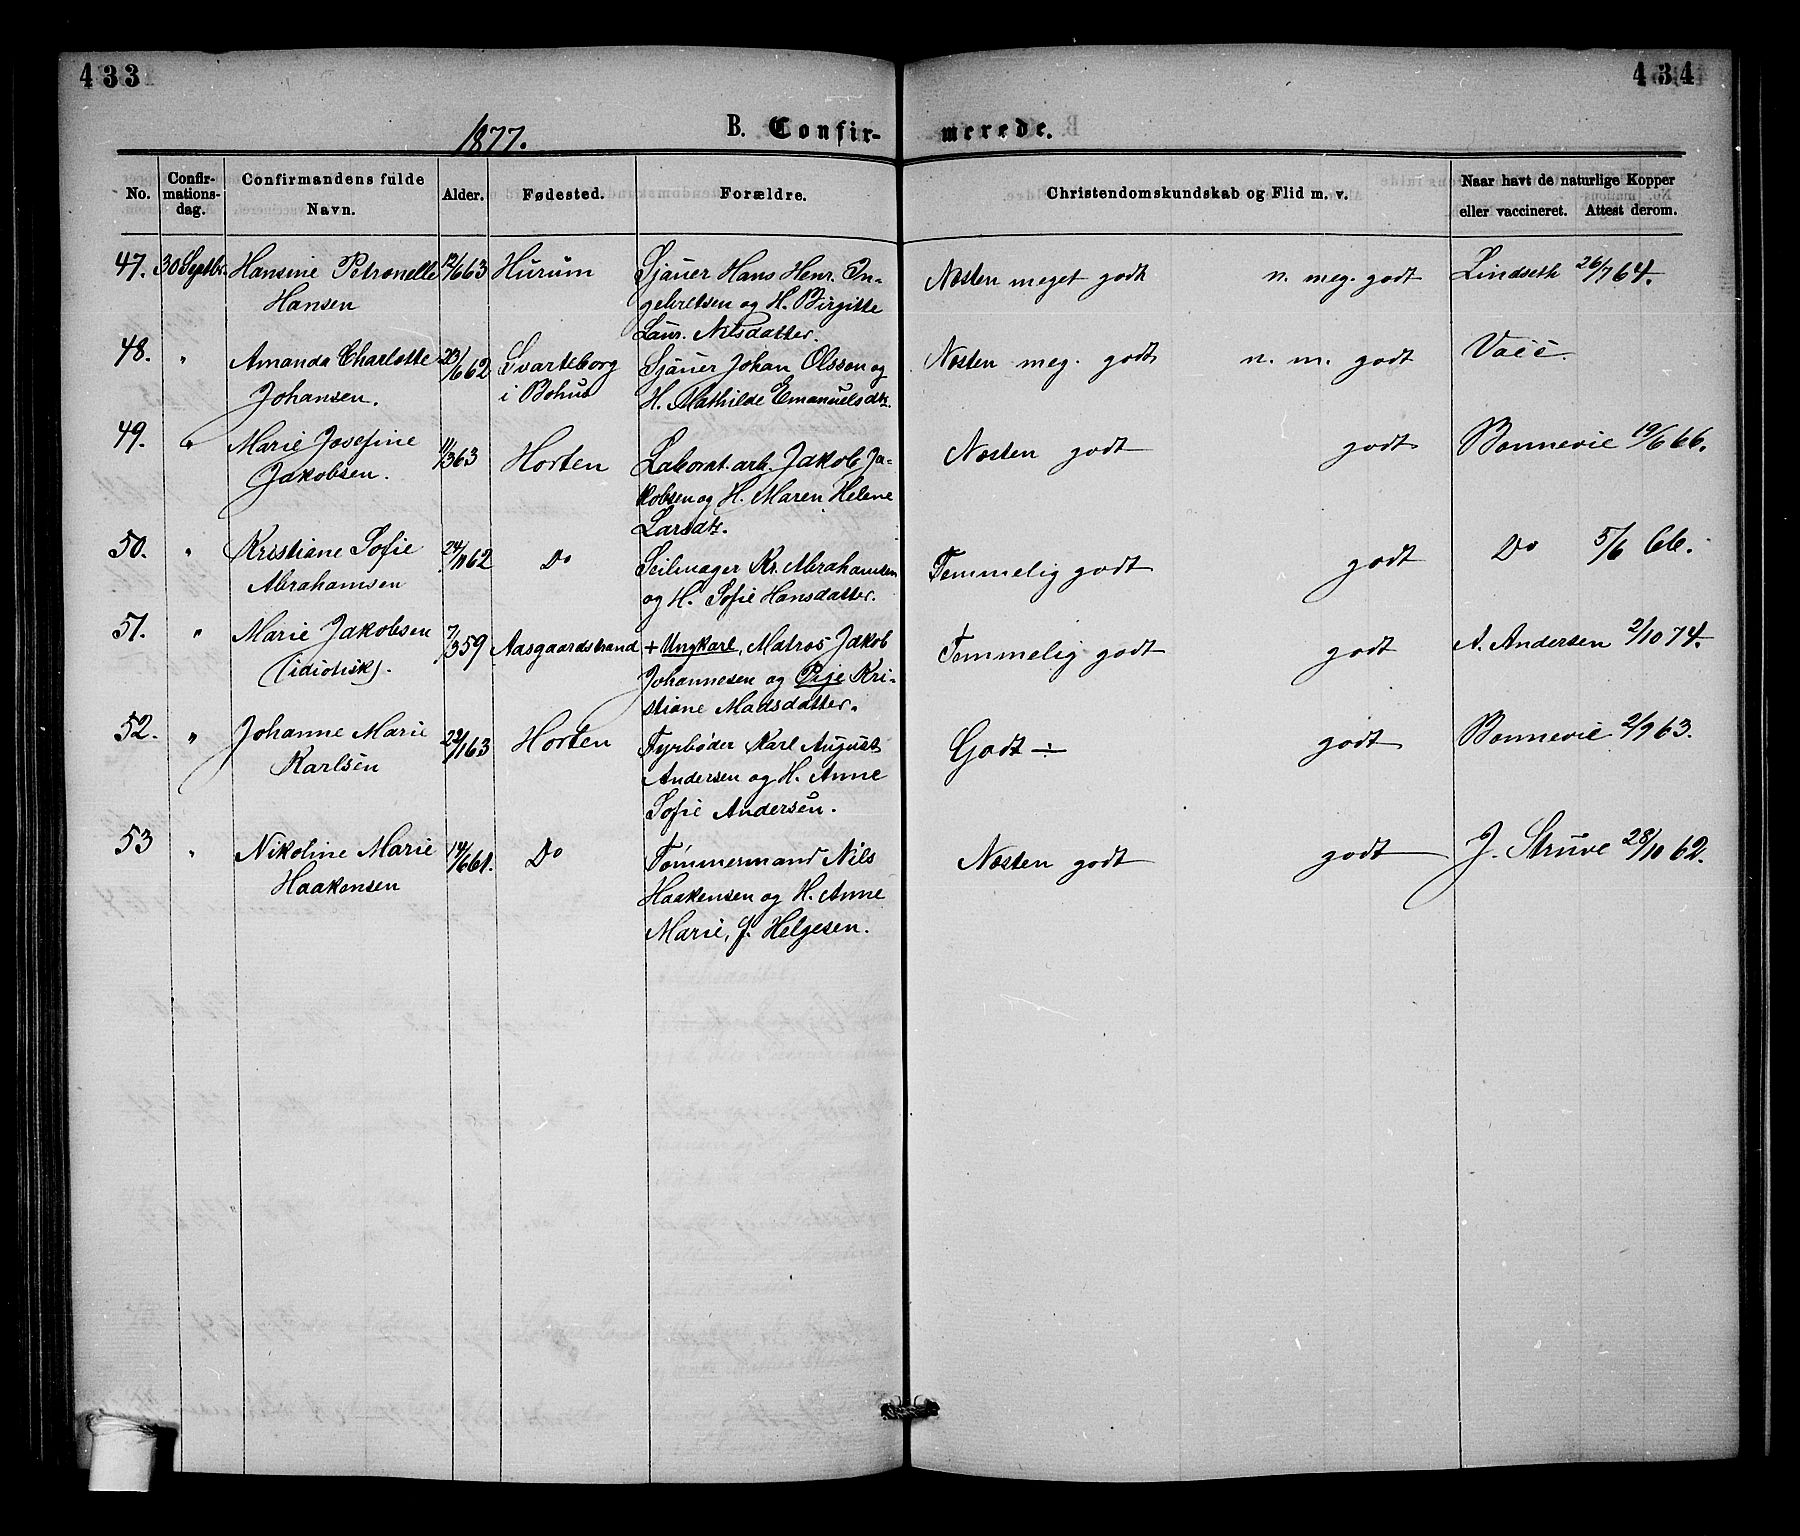 433
434
1877.
B. Confir-
merede.
No.
Confir-
mations-
dag.
Confirmandens fulde
Navn.
Alder.
Fødested.
Forældre.
Christendomskundskab og Flid m. v.
Naar havt de naturlige Kopper
eller vaccineret. Attest derom.
47. 30 Septbr. Hansine Petronelle 12/6 63 Hurum Sjauer Hans Henr. In- Næsten meget godt n. meg. godt Lindseth 26/7 64.
Hansen gebretsen og H. Birgitte
Laur. Nilsdatter.
48. " Amanda Charlotte 23/6 62 Svarteborg Sjauer Johan Olsson og Næsten meg. godt n. m. godt Vacc
Johansen. i Bohus H. Mathilde Emanuelsdtr.
49. " Marie Josefine 11/3 63 Horten Laborat.arb. Jakob Ja- Næsten godt godt Bonnevie 19/6 66.
Jakobsen. kobsen og H. Maren Helene
Larsdtr.
50. " Kristiane Sofie 24/11 62 Do Seilmager Kr. Abrahamsen Temmelig godt godt Do 5/6 66.
Abrahamsen og H. Sofie Hansdatter.
51. " Marie Jakobsen 7/3 59 Aasgaardstrand + Ungkarl, Matros Jakob Temmelig godt godt A. Andersen 2/10 74.
(idiotisk). Johannesen og Pige Kri-
stiane Madsdatter.
52. " Johanne Marie 22/1 63 Horten Fyrbøder Karl August Godt ÷ godt Bonnevie 2/9 63.
Karlsen Andersen og H. Anne
Sofie Andersen.
53 " Nikoline Marie 14/6 61. Do Tømmermand Nils Næsten godt godt J. Struve 28/10 62.
Haakensen Haakensen og H. Anne
Marie, f. Helgesen.